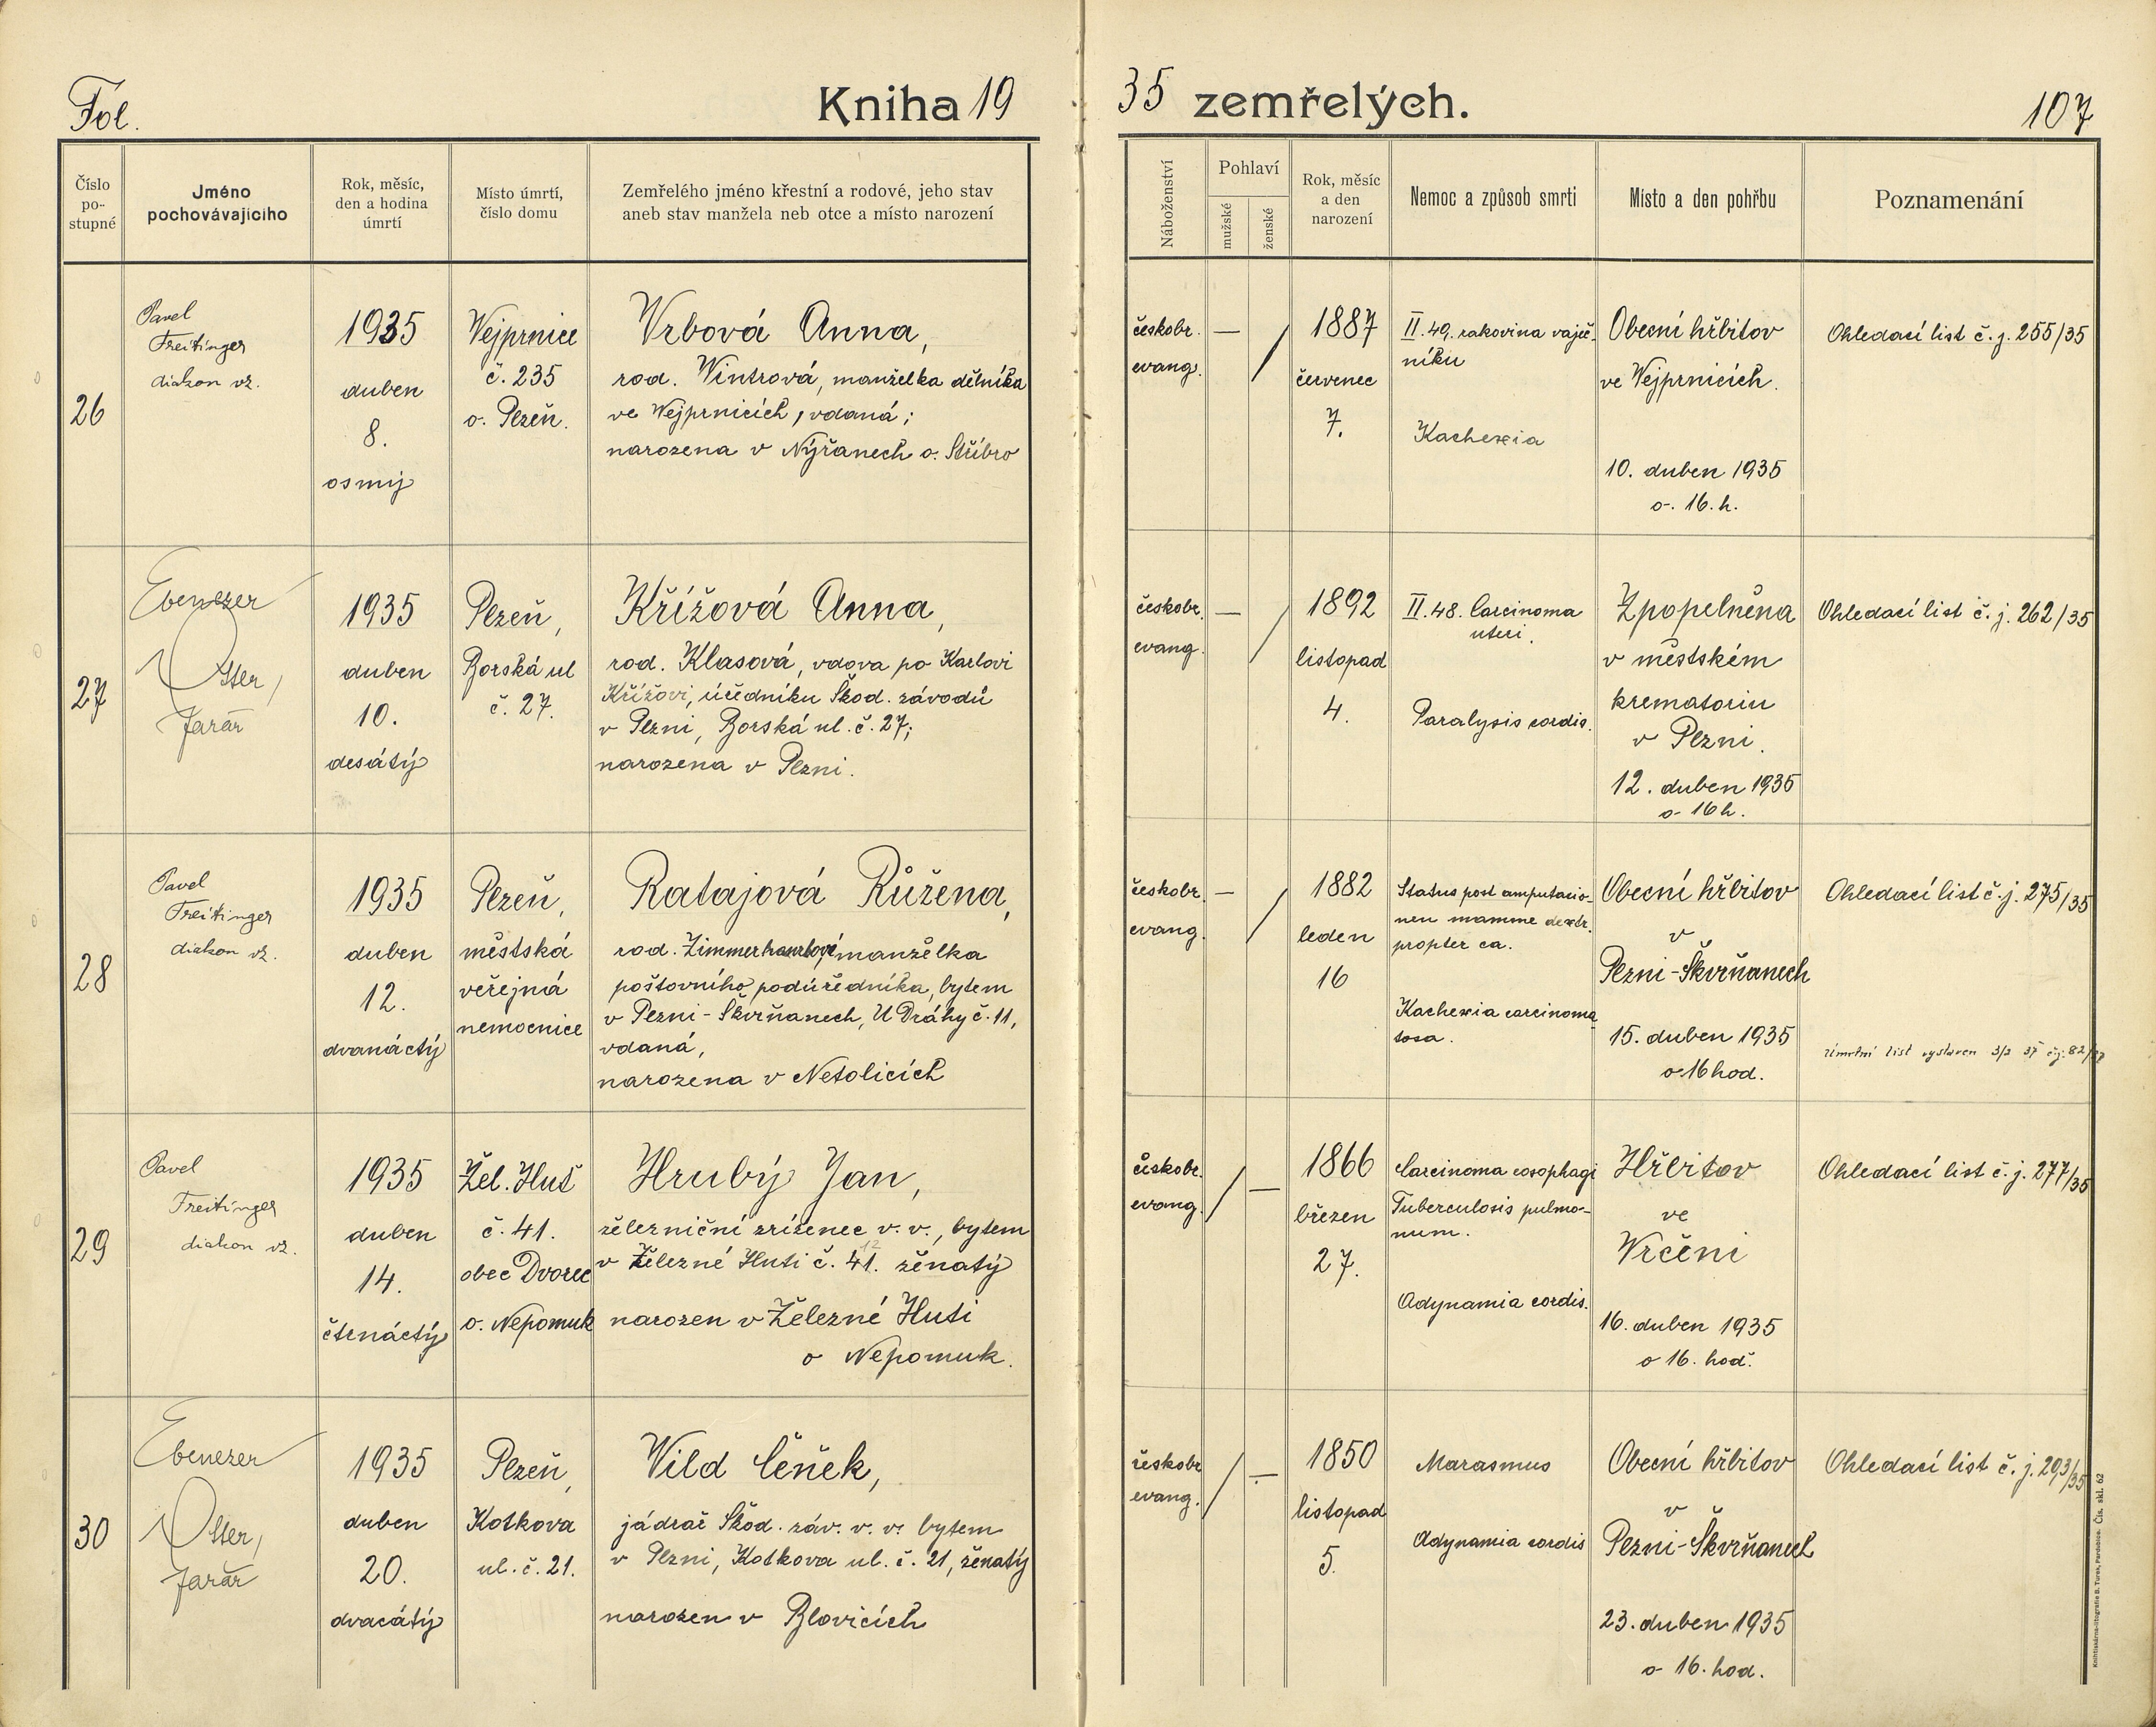 Fol.
Kniha 19
35 zemřelých.
107
Číslo
po-
stupné
Jméno
pochovávajícího
Rok, měsíc,
den a hodina
úmrtí
Místo úmrtí,
číslo domu
Zemřelého jméno křestní a rodové, jeho stav
aneb stav manžela neb otce a místo narození
Náboženství
Pohlaví
mužské
ženské
Rok, měsíc
a den
narození
Nemoc a způsob smrti
Místo a den pohřbu
Poznamenání
26
Pavel
Freitinger
diakon vz.
1935
duben
8.
osmý
Wejprnice
č. 235
o. Plzeň.
Vrbová Anna,
rod. Wintrová, manželka dělníka
ve Wejprnicích, vdaná;
narozena v Nýřanech o. Stříbro
českobr.
evang.
—
/
1887
červenec
7.
II. 49. rakovina vaječ-
níku
Kachexia
Obecní hřbitov
ve Wejprnicích.
10. duben 1935
o. 16. h.
Ohledací list č. j. 255/35
27
Ebenezer
Otter,
farář
1935
duben
10.
desátý
Plzeň,
Borská ul
č. 27.
Křížová Anna,
rod. Klasová, vdova po Karlovi
Křížovi, úředníku Škod. závodů
v Plzni, Borská ul. č. 27;
narozena v Plzni.
českobr.
evang.
—
/
1892
listopad
4.
II. 48. Carcinoma
uteri.
Paralysis cordis.
Zpopelněna
v městském
krematoriu
v Plzni.
12. duben 1935
o 16 h.
Ohledací list č. j. 262/35
28
Pavel
Freitinger
diakon vz.
1935
duben
12.
dvanáctý
Plzeň,
městská
veřejná
nemocnice
Ratajová Růžena,
rod. manželka
poštovního podúředníka, bytem
v Plzni-Škvrňanech, U Dráhy č. 11,
vdaná,
narozena v Netolicích
českobr.
evang.
—
/
1882
leden
16
Status post amputacio-
nem mamme dextr.
propter ca.
Kachexia carcinoma
tosa.
Obecní hřbitov
v
Plzni-Škvrňanech
15. duben 1935
o 16 hod.
Ohledací list č. j. 275/35
úmrtní list vystaven
29
Pavel
Freitinger
diakon vz.
1935
duben
14.
čtrnáctý
Žel. Huť
č. 41.
obec Dvorec
o. Nepomuk
Hrubý Jan,
železniční zřízenec v. v., bytem
v Železné Huti č. 41. ženatý
narozen v Železné Huti
o Nepomuk.
českobr.
evang.
/
—
1866
březen
27.
Carcinoma eosophagi
Tuberculosis pulmo-
num.
Adynamia cordis.
Hřbitov
ve
Vrčeni
16. duben 1935
o 16. hod.
Ohledací list č. j. 277/35
30
Ebenezer
Otter,
farář
1935
duben
20.
dvacátý
Plzeň,
Kotkova
ul. č. 21.
Wild Čeněk,
jádrař Škod. záv. v. v. bytem
v Plzni, Kotkova ul. č. 21, ženatý
narozen v Blovicích
českobr.
evang.
/
—
1850
listopad
5.
Marasmus
Adynamia cordis
Obecní hřbitov
v
Plzni-Škvrňanech
23. duben 1935
o 16. hod.
Ohledací list č. j. 293/35
Knihtiskárna-litografie B. Turek, Pardubice. Čís. skl. 62